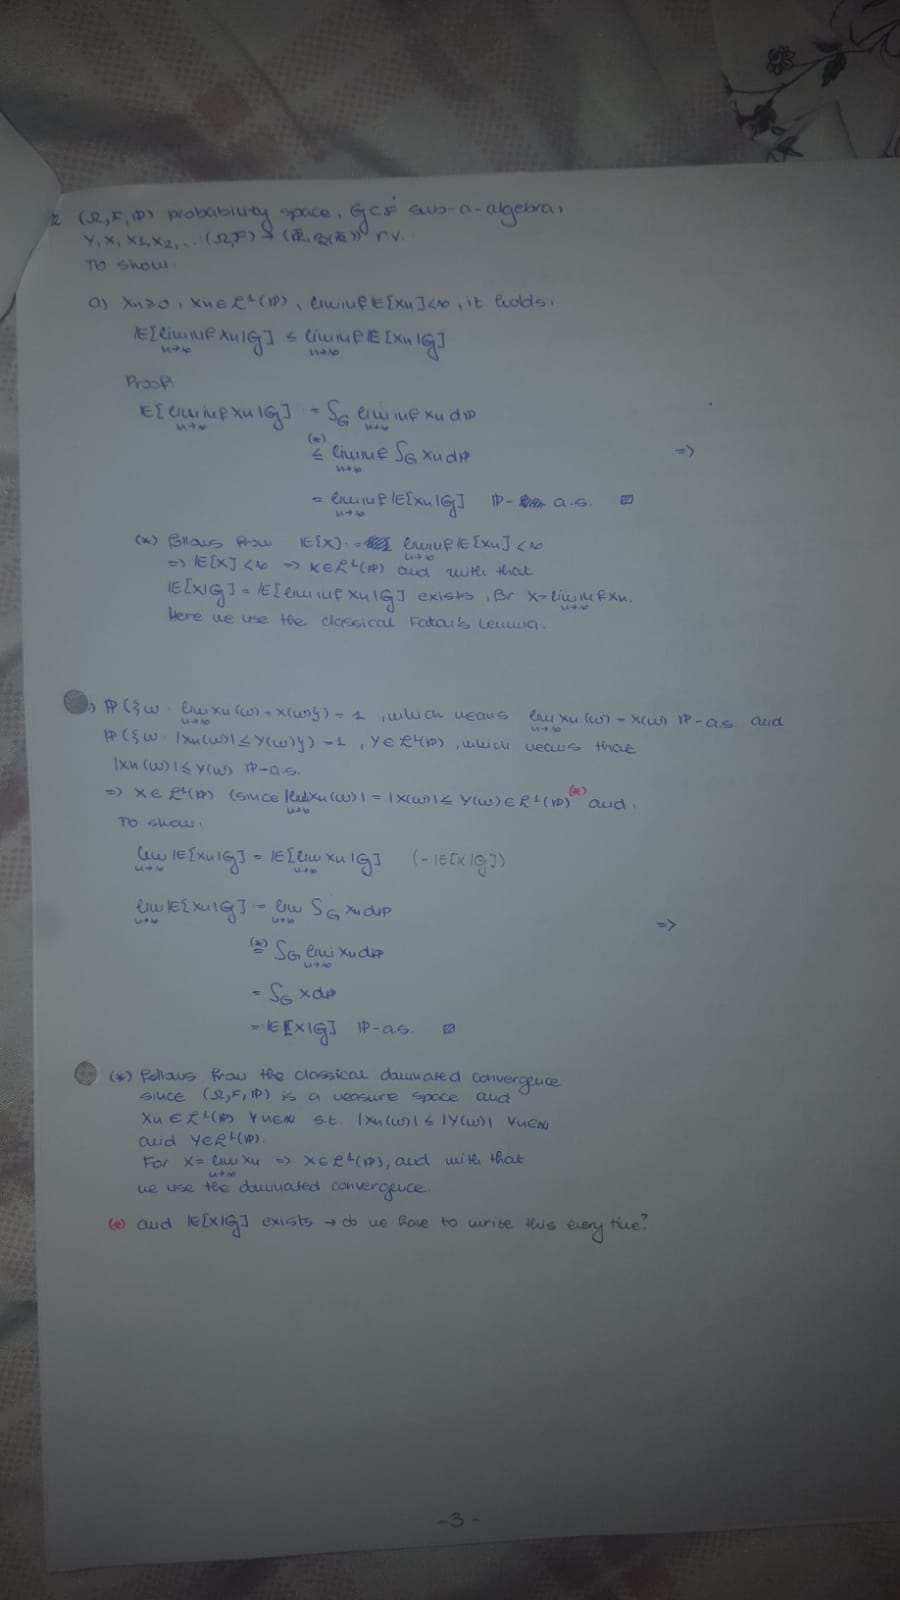 (Ω,F,ℙ) probability space, G⊂F sub-σ-algebra,
Y, X, X1, X2, ... : (Ω,F) → (ℝ̄, B(ℝ̄)) r.v.
To show.
a) Xn≥0, Xn∈L¹(ℙ), liminf E[Xn]<∞, it holds:
E[liminf n→∞ Xn|G] ≤ liminf n→∞ E[Xn|G]
Proof:
E[liminf n→∞ Xn|G] = ∫G liminf n→∞ Xn dℙ
(*) ≤ liminf n→∞ ∫G Xn dℙ =>
= liminf n→∞ E[Xn|G] ℙ- a.s. ▨
(*) follows from E[X] = liminf n→∞ E[Xn] <∞
=> E[X] <∞ => X∈L¹(ℙ) and with that
E[X|G] = E[liminf Xn|G] exists, for X=liminf n→∞ Xn.
Here we use the classical Fatou's Lemma.
) ℙ({ω: lim n→∞ Xn(ω) = X(ω)}) = 1, which means lim n→∞ Xn(ω) = X(ω) ℙ-a.s. and
ℙ({ω: |Xn(ω)| ≤ Y(ω)}) = 1, Y∈L¹(ℙ), which means that
|Xn(ω)| ≤ Y(ω) ℙ-a.s.
=> X∈L¹(ℙ) (since |lim n→∞ Xn(ω)| = |X(ω)| ≤ Y(ω) ∈ L¹(ℙ) (*) and.
To show:
lim n→∞ E[Xn|G] = E[lim n→∞ Xn|G] (= E[X|G])
lim n→∞ E[Xn|G] = lim n→∞ ∫G Xn dℙ
(*) = ∫G lim n→∞ Xn dℙ =>
= ∫G X dℙ
= E[X|G] ℙ-a.s. ▨
(*) follows from the classical dominated convergence
since (Ω,F,ℙ) is a measure space and
Xn ∈ L¹(ℙ) ∀n∈ℕ s.t. |Xn(ω)| ≤ |Y(ω)| ∀n∈ℕ
and Y∈L¹(ℙ).
For X= lim n→∞ Xn => X∈L¹(ℙ), and with that
we use the dominated convergence.
(*) and E[X|G] exists → do we have to write this every time?
-3-